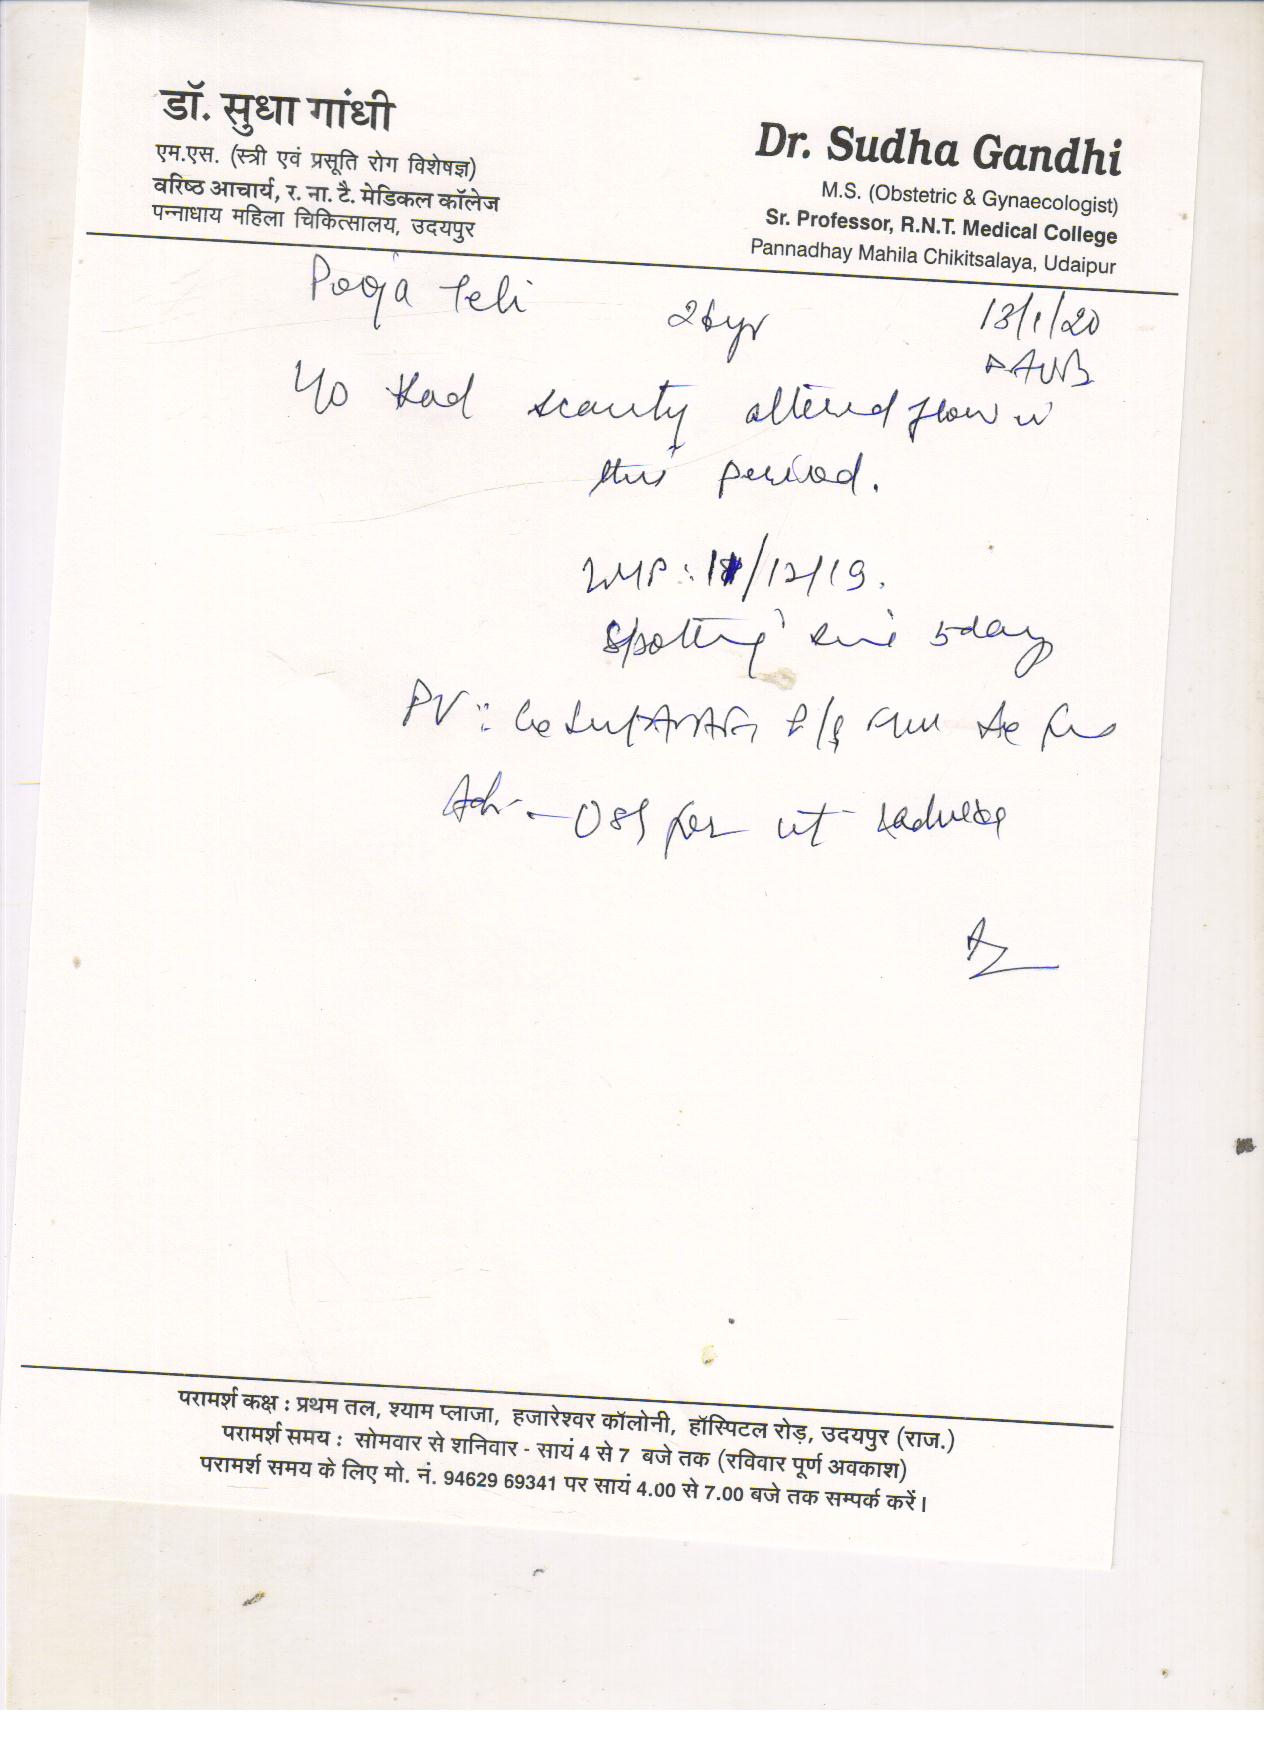 डॉ. सुधा गांधी
एम.एस. (स्त्री एवं प्रसूति रोग विशेषज्ञ)
वरिष्ठ आचार्य, र. ना. टै. मेडिकल कॉलेज
पन्नाधाय महिला चिकित्सालय, उदयपुर
Dr. Sudha Gandhi
M.S. (Obstetric & Gynaecologist)
Sr. Professor, R.N.T. Medical College
Pannadhay Mahila Chikitsalaya, Udaipur
Pooja Teli 26yr 13/1/20
AUB
Had scanty altered flow
this period.
LMP : /12/19.
Spotting since 5day
PV :
Adv - USG for ut
परामर्श कक्ष : प्रथम तल, श्याम प्लाजा, हजारेश्वर कॉलोनी, हॉस्पिटल रोड़, उदयपुर (राज.)
परामर्श समय : सोमवार से शनिवार - सायं 4 से 7 बजे तक (रविवार पूर्ण अवकाश)
परामर्श समय के लिए मो. नं. 94629 69341 पर सायं 4.00 से 7.00 बजे तक सम्पर्क करें।